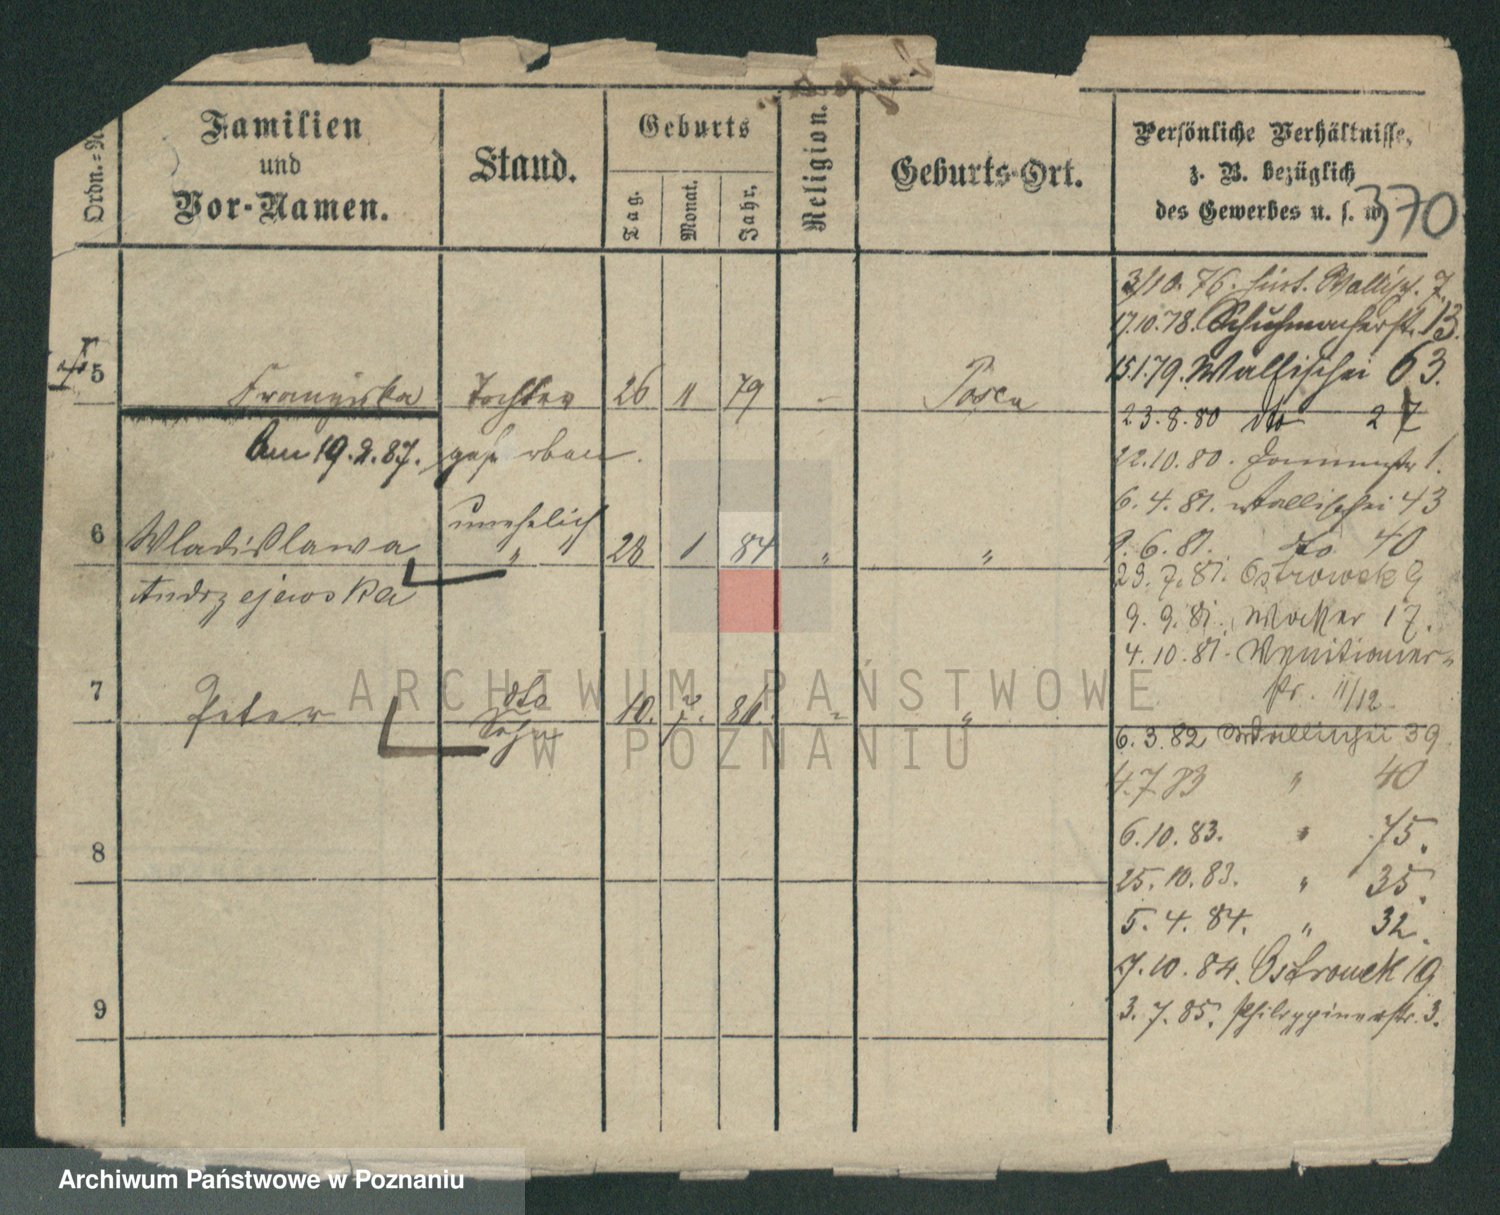 Ordn.=N
Familien
und
Vor-Namen.
Stand.
Geburts
Tag.
Monat.
Jahr.
Religion.
Geburts-Ort.
Persönliche Verhältnisse,
z. B. bezüglich
des Gewerbes u. s. w.
370
5 Franziska Tochter 26 11 79 - Posen
Am 19.2.87. gestorben.
unehelich
6 Wladislawa " 28 1 84 " "
Andrzejewska
7 Peter dto Sohn 10. 7. 86. " "
8
9
3/10. 76. hint. Wallisch. 7.
17.10.78. Schuhmacherstr. 13.
15.1.79. Wallischei 63.
23.8.80 dto 27
22.10.80. 1.
6.4.81. Wallischei 43
9.6.81. dto 40
29.7.81. Ostrowek 9
9.9.81. 17.
4.10.81. Venitianer-
str. 11/12.
6.3.82 Wallischei 39
4.7.83 " 40
6.10.83. " 75.
25.10.83. " 35.
5.4.84. " 32.
7.10.84. Ostrowek 19
3.7.85. Philippinerstr. 3.
ARCHIWUM PAŃSTWOWE
W POZNANIU
Archiwum Państwowe w Poznaniu